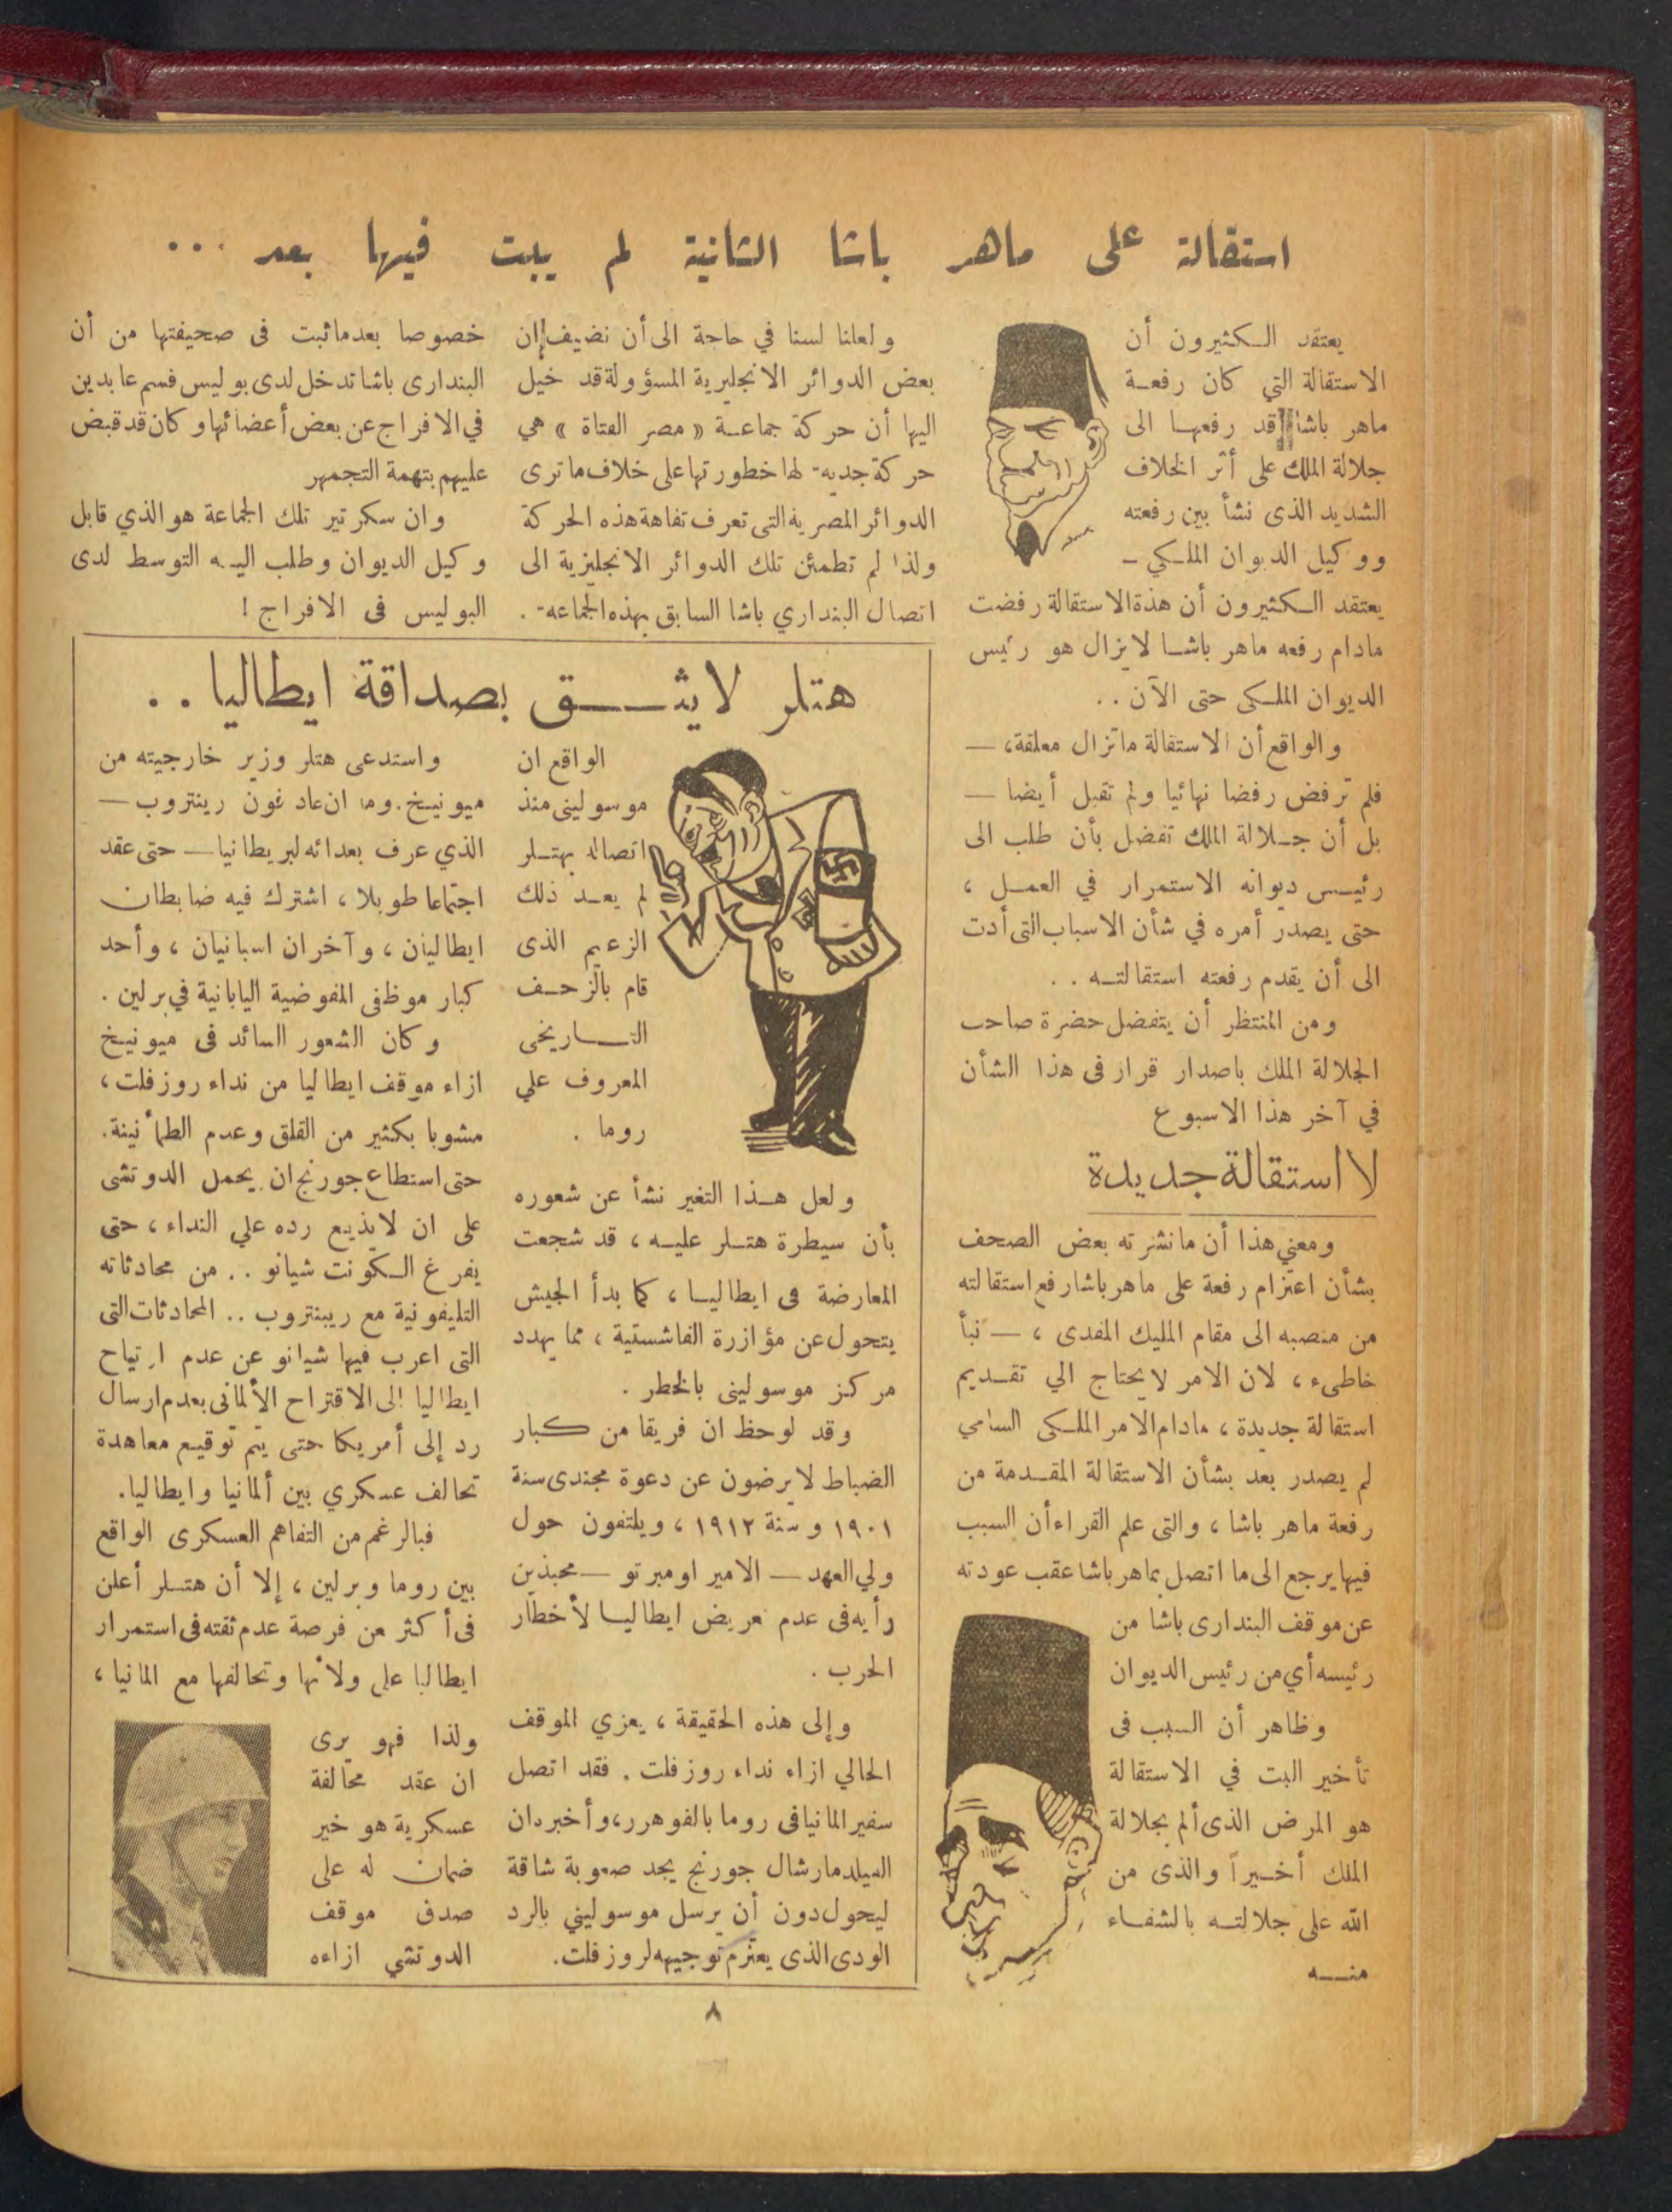 استقالة على ماهر باشا الثانية لم يبت فيها بعد ...
يعتقد الكثيرون أن
الاستقالة التي كان رفعة
ماهر باشا قد رفعها الى
جلالة الملك على أثر الخلاف
الشديد الذى نشأ بين رفعته
ووكيل الديوان الملكي —
يعتقد الكثيرون أن هذة الاستقالة رفضت
مادام رفعه ماهر باشا لايزال هو رئيس
الديوان الملكى حتى الآن . .
والواقع أن الاستقالة ماتزال معلقة، —
فلم ترفض رفضا نهائيا ولم تقبل أيضا —
بل أن جلالة الملك تفضل بأن طلب الى
رئيس ديوانه الاستمرار في العمل ،
حتى يصدر أمره في شأن الاسباب التى أدت
الى أن يقدم رفعته استقالته . .
ومن المنتظر أن يتفضل حضرة صاحب
الجلالة الملك باصدار قرار فى هذا الشأن
في آخر هذا الاسبوع
لا استقالة جديدة
ومعني هذا أن مانشرته بعض الصحف
بشأن اعتزام رفعة على ماهر باشا رفع استقالته
من منصبه الى مقام المليك المفدى ، — نبأ
خاطىء ، لان الامر لا يحتاج الي تقديم
استقالة جديدة ، مادام الامر الملكى السامي
لم يصدر بعد بشأن الاستقالة المقدمة من
رفعة ماهر باشا ، والتى علم القراء أن السبب
فيها يرجع الى ما اتصل بماهر باشا عقب عودته
عن موقف البندارى باشا من
رئيسه أي من رئيس الديوان
وظاهر أن السبب فى
تأخير البت في الاستقالة
هو المرض الذى ألم بجلالة
الملك أخيراً والذى من
الله على جلالته بالشفاء
منه
ولعلنا لسنا في حاجة الى أن نضيف إن
بعض الدوائر الانجليزية المسؤولة قد خيل
اليها أن حركة جماعة « مصر الفتاة » هي
حركة جديه لها خطورتها على خلاف ما ترى
الدوائر المصريه التى تعرف تفاهة هذه الحركة
ولذا لم تطمئن تلك الدوائر الانجليزية الى
اتصال البنداري باشا السابق بهذه الجماعه .
خصوصا بعد ماثبت فى صحيفتها من أن
البندارى باشا تدخل لدى بوليس قسم عابدين
في الافراج عن بعض أعضائها وكان قد قبض
عليهم بتهمة التجمهر
وان سكرتير تلك الجماعة هو الذي قابل
وكيل الديوان وطلب اليه التوسط لدى
البوليس فى الافراج !
هتلر لايثق بصداقة ايطاليا . .
الواقع ان
موسولينى منذ
اتصاله بهتلر
لم يعد ذلك
الزعيم الذى
قام بالزحف
التاريخى
المعروف علي
روما .
ولعل هذا التغير نشأ عن شعوره
بأن سيطرة هتلر عليه ، قد شجعت
المعارضة فى ايطاليا ، كما بدأ الجيش
يتحول عن مؤازرة الفاشستية ، مما يهدد
مركز موسولينى بالخطر .
وقد لوحظ ان فريقا من كبار
الضباط لا يرضون عن دعوة مجندى سنة
١٩٠١ و سنة ١٩١٢ ، ويلتفون حول
ولي العهد — الامير اومبرتو — محبذين
رأيه فى عدم تعريض ايطاليا لأخطار
الحرب .
وإلى هذه الحقيقة ، يعزي الموقف
الحالي ازاء نداء روزفلت . فقد اتصل
سفير المانيا فى روما بالفوهرر، وأخبر دان
الفيلد مارشال جورنج يجد صعوبة شاقة
ليحول دون أن يرسل موسوليني بالرد
الودى الذى يعتزم توجيهه لروزفلت.
واستدعى هتلر وزير خارجيته من
ميونيخ . وما ان عاد فون رينتروب —
الذي عرف بعدائه لبريطانيا — حتى عقد
اجتماعا طويلا ، اشترك فيه ضابطان
ايطاليان ، وآخران اسبانيان ، وأحد
كبار موظفى المفوضية اليابانية في برلين .
وكان الشعور السائد فى ميونيخ
ازاء موقف ايطاليا من نداء روزفلت ،
مشوبا بكثير من القلق وعدم الطمأنينة.
حتى استطاع جورنج ان يحمل الدوتشى
على ان لايذيع رده علي النداء ، حتى
يفرغ الكونت شيانو . . من محادثاته
التليفونية مع ريبنتروب .. المحادثات التى
التى اعرب فيها شيانو عن عدم ارتياح
ايطاليا الى الاقتراح الألمانى بعدم ارسال
رد إلى أمريكا حتى يتم توقيع معاهدة
تحالف عسكري بين ألمانيا وايطاليا.
فبالرغم من التفاهم العسكرى الواقع
بين روما وبرلين ، إلا أن هتلر أعلن
فى أكثر من فرصة عدم ثقته فى استمرار
ايطاليا على ولائها وتحالفها مع المانيا ،
ولذا فهو يرى
ان عقد محالفة
عسكرية هو خير
ضمان له على
صدق موقف
الدوتشي ازاءه
٨